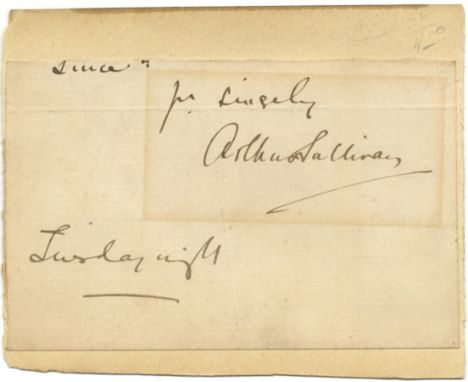 since
yrs sincerely
Arthur Sullivan
Tuesday night